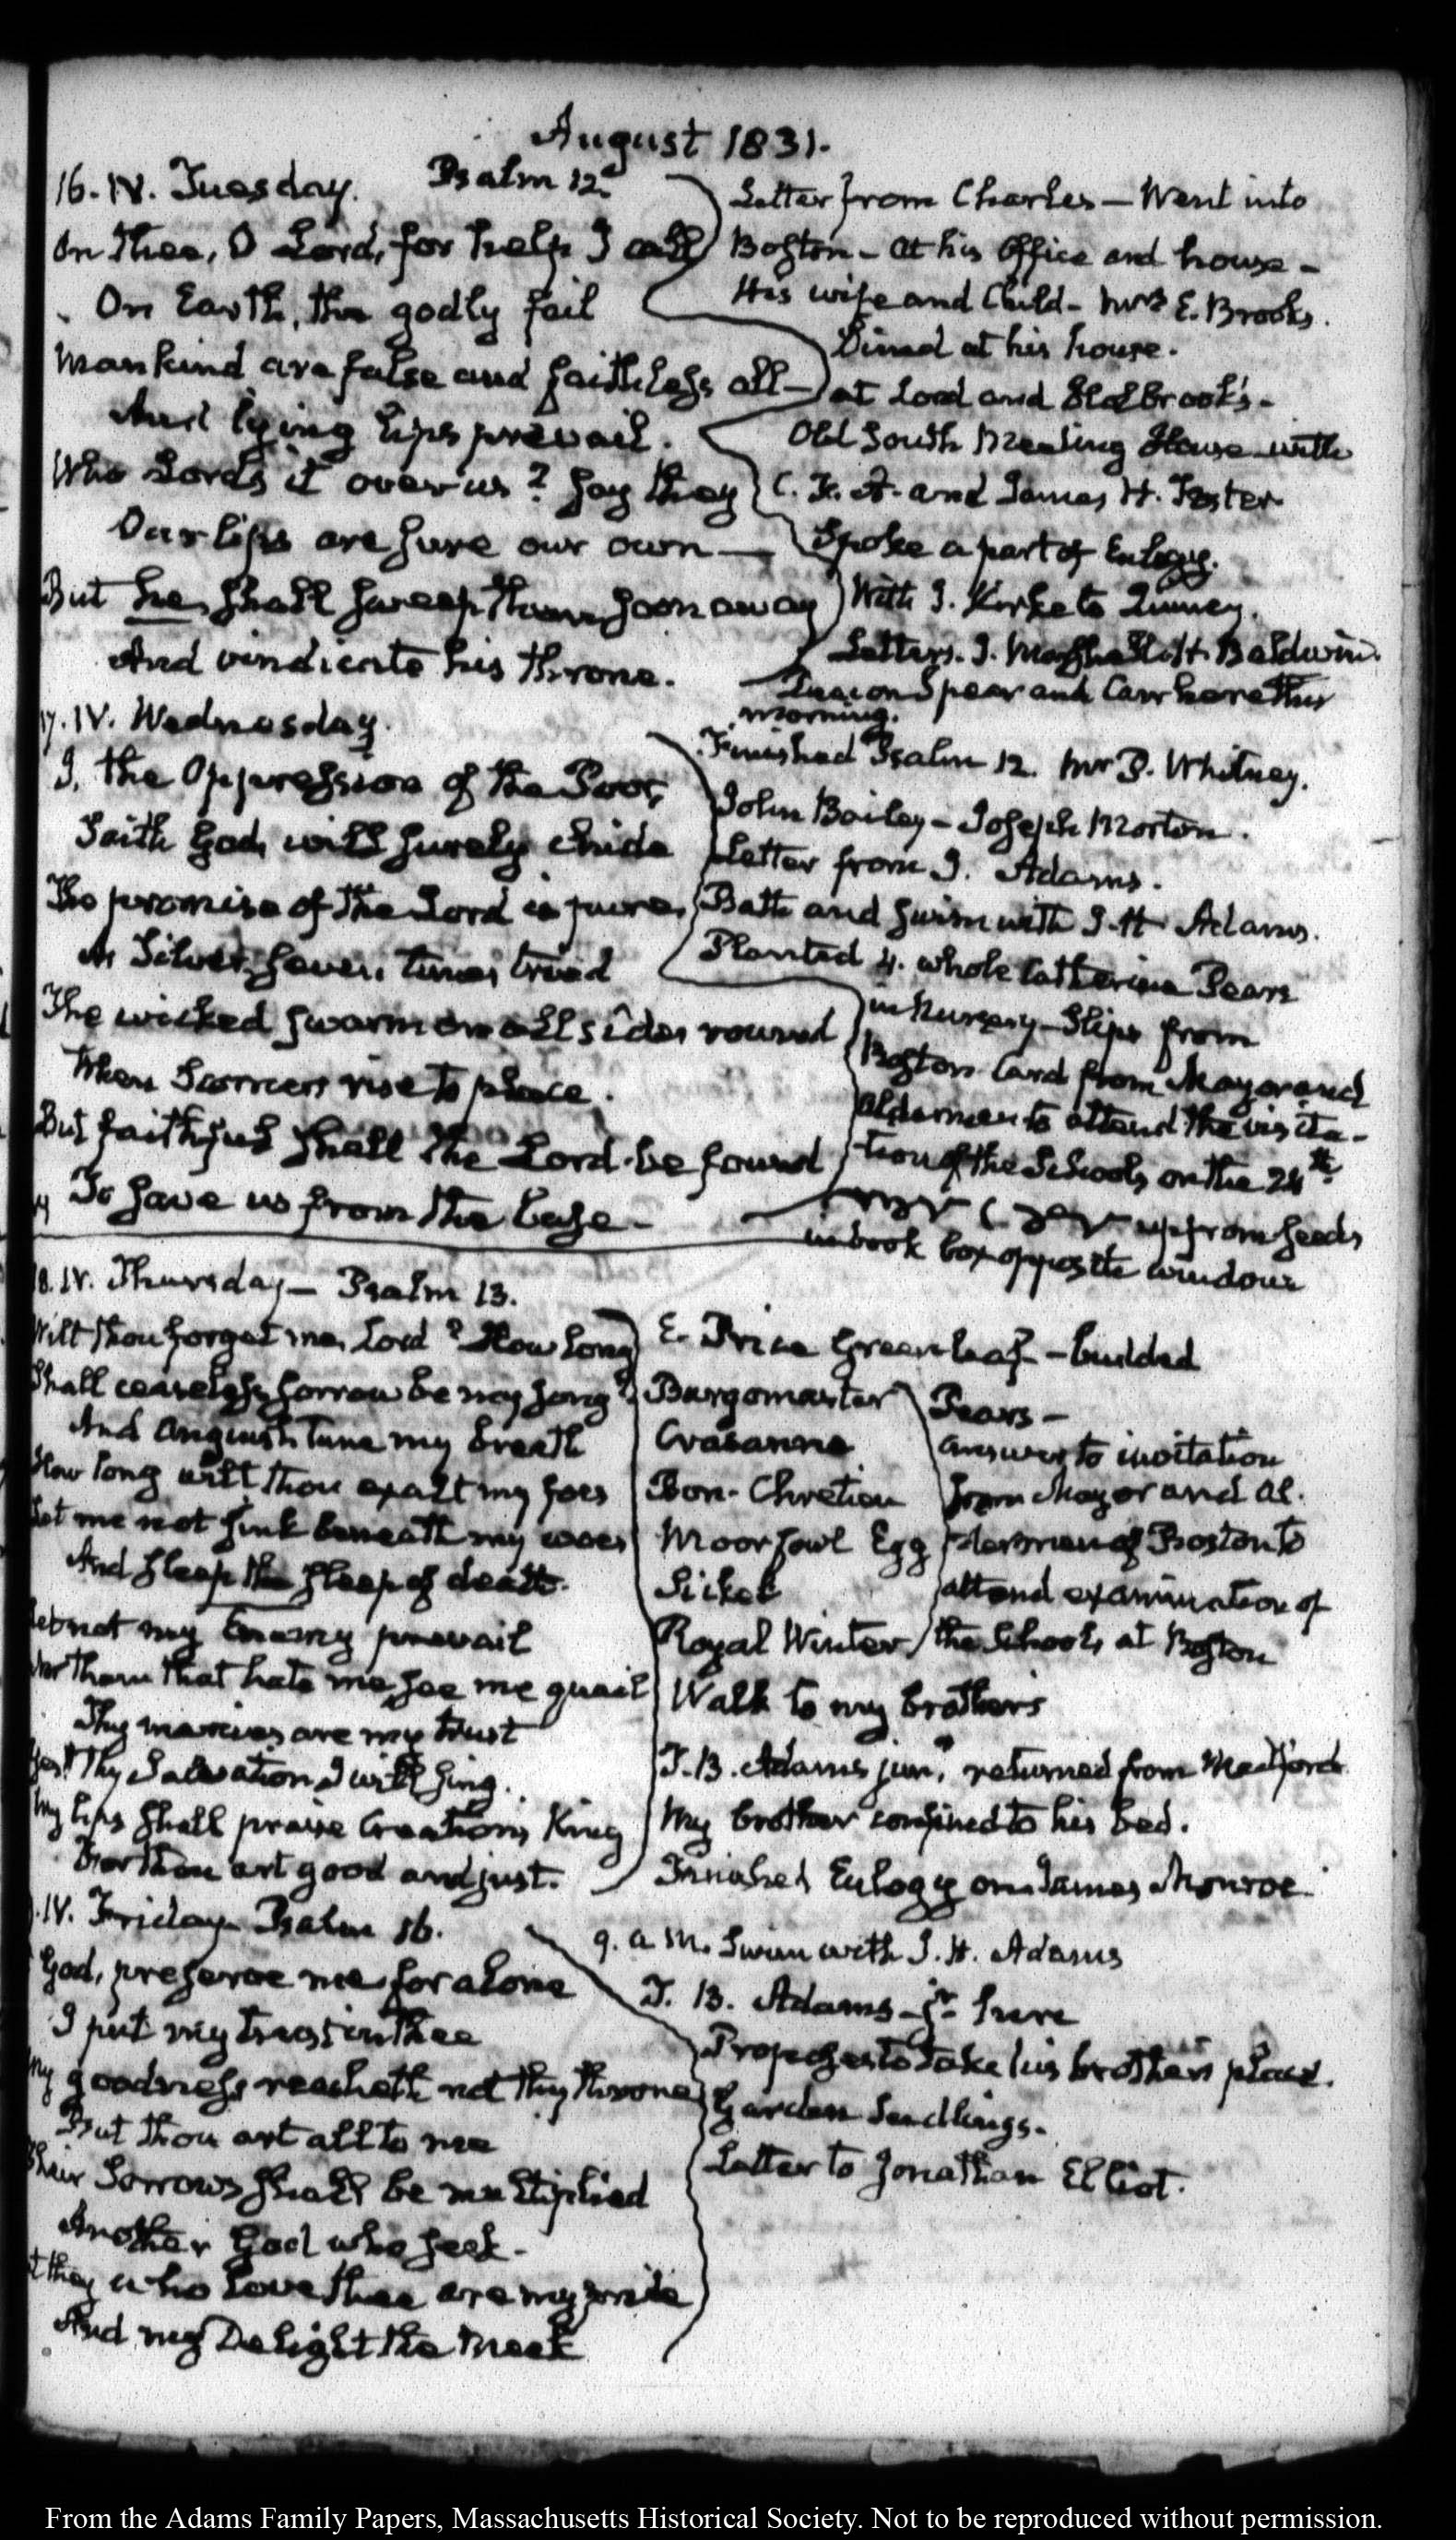 August 1831.
16. IV. Tuesday. Psalm 12.
On Thee, O Lord, for help I call
On Earth, the godly fail
Mankind are false and faithless all—
And lying lips prevail.
Who Lords it over us? say they
Our lips are sure our own—
But he, shall sweep them soon away
And vindicate his throne.
Letter from Charles — Went into
Boston — at his Office and house —
His wife and Child — Mrs E. Brooks.
Dined at his house.
at Lord and Holbrook's —
Old South Meeting House with
C. F. A. and James H. Foster
Spoke a part of Eulogy.
With I. Kirke to Quincy.
Letters. J. Marshall. H. Baldwin.
Deacon Spear and Carr here this
morning.
17. IV. Wednesday.
I, the Oppression of the Poor,
Saith God, will surely chide
The promise of the Lord is pure,
As Silver, seven times tried
The wicked swarm on all sides round
When Scorners rise to place.
But faithful shall the Lord be found
To save us from the base —
Finished Psalm 12. Mr P. Whitney.
John Bailey — Joseph Morton.
Letter from I. Adams.
Bath and swim with I. H. Adams.
Planted 4. whole Catherine Pears
in Nursery — Slips from
Boston Card from Mayor and
Aldermen to attend the visita-
tion of the Schools on the 24th
up from seeds
in book box opposite window
18. IV. Thursday — Psalm 13.
Wilt thou forget me, Lord? How long
Shall ceaseless sorrow be my song?
And anguish tune my breath
How long wilt thou exalt my foes
Let me not sink beneath my woes
And sleep the sleep of death.
Let not my Enemy prevail
Nor them that hate me see me quail
Thy mercies are my trust
Yes! Thy Salvation I will sing.
My lips shall praise Creation's King
For thou art good and just.
E. Price Greenleaf — budded
Burgomaster
Crasanne
Bon-Chretien
Moorfowl Egg
Sickel
Royal Winter
Pears —
answer to invitation
from Mayor and Al-
dermen of Boston to
attend examination of
the Schools at Boston
Walk to my brother's
T. B. Adams jun.r returned from Medford
My brother confined to his bed.
Finished Eulogy on James Monroe.
IV. Friday — Psalm 16.
God, preserve me, for alone
I put my trust in thee
My goodness reacheth not thy throne
But thou art all to me
Their Sorrows shall be multiplied
Another God who seek —
they who love thee are my pride
And my Delight the Meek
9. a M. Swim with I. H. Adams
T. B. Adams jr here
Proposes to take his brother's place.
Garden Seedlings.
Letter to Jonathan Elliot.